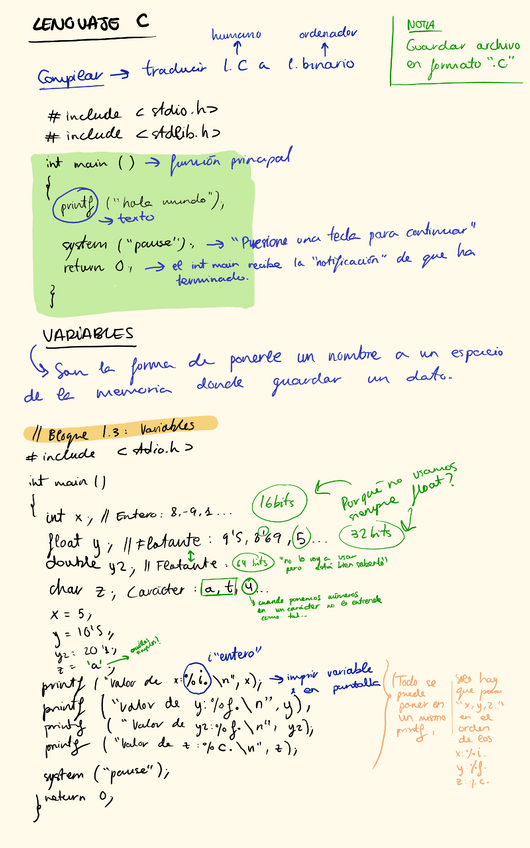 LENGUAJE C
humano ordenador
Compilar → traducir l.C a l.binario
NOTA
Guardar archivo
en formato ".C"
# include < stdio.h>
# include < stdlib.h>
int main () → función principal
{
printf ("hola mundo");
→ texto
system ("pause"); → "Presione una tecla para continuar"
return 0; → el int main recibe la "notificación" de que ha
terminado.
}
VARIABLES
Son la forma de ponerle un nombre a un espacio
de la memoria donde guardar un dato.
// Bloque 1.3: Variables
# include < stdio.h >
int main ()
{
int x; // Entero: 8,-9,1...
16bits
Porqué no usamos
siempre float?
float y; // Flotante: 9'5, 8'69, 5...
32 bits
double y2; // Flotante: 64 bits "no lo voy a usar
pero está bien saberlo"
char z; Carácter: a, t, 4...
cuando ponemos números
en un carácter no se entiende
como tal...
x = 5;
y = 10'5;
y2 = 20'1;
z = 'a';
i "entero"
printf ("Valor de x:%i.\n", x); → imprir variable
x en pantalla
printf ("Valor de y:%f.\n", y);
printf ("Valor de y2:%f.\n", y2);
printf ("Valor de z:%c.\n", z);
system ("pause");
return 0;
}
(Todo se
puede
poner en
un mismo
printf,
hay
que poner
"x,y,z."
en el
orden
de los
x:%i.
y:%f.
z:%c.